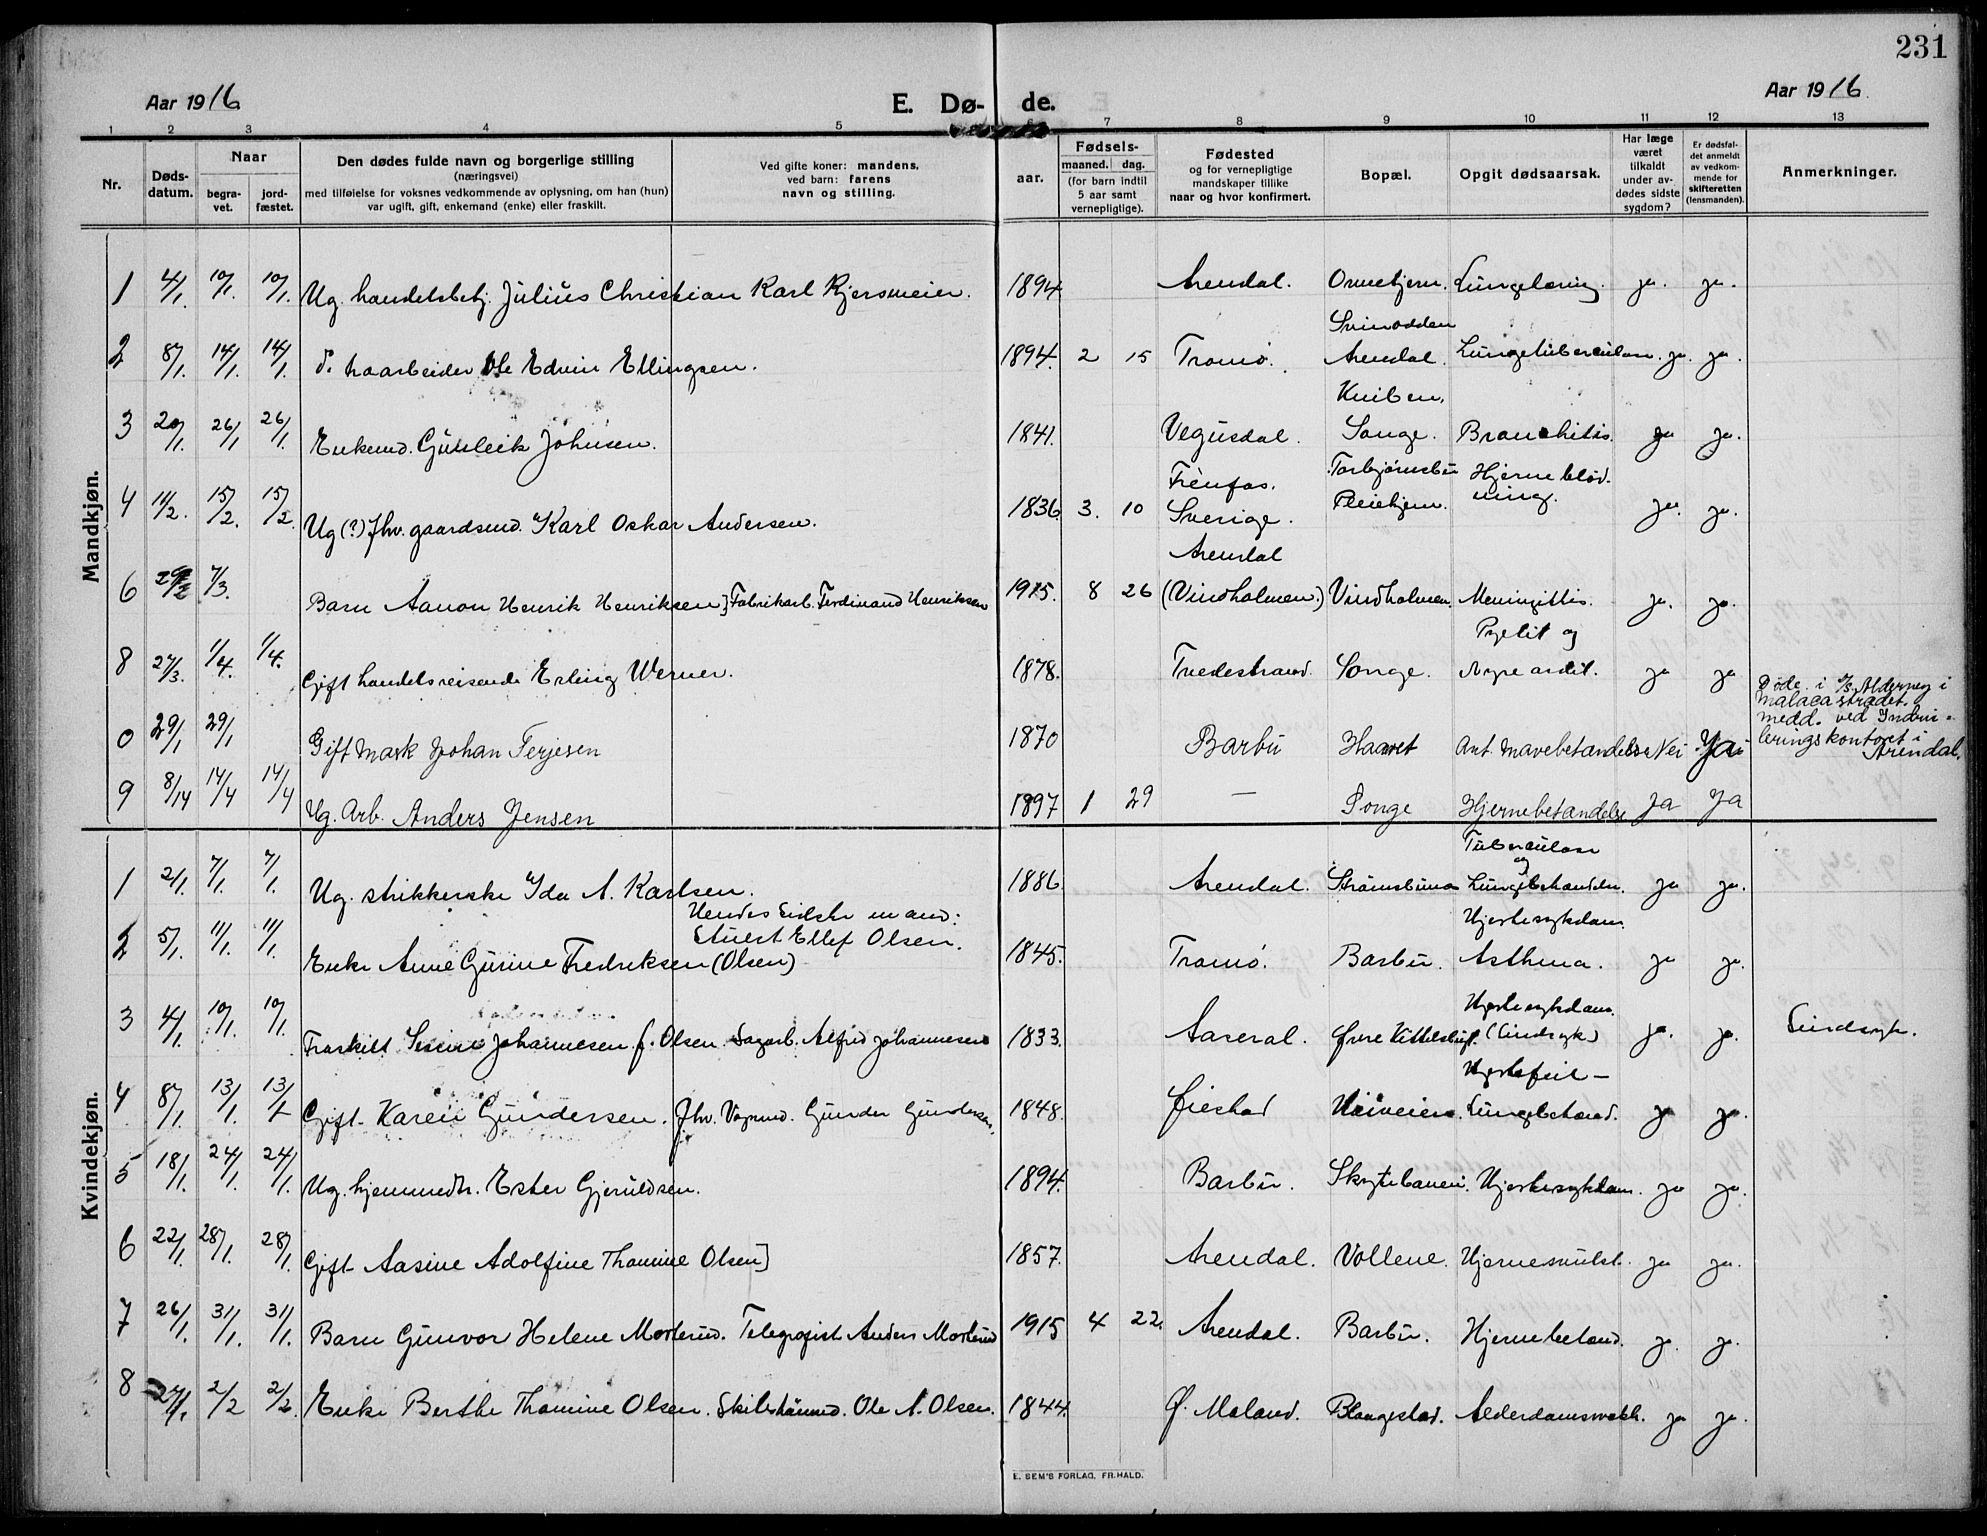 231
Aar 1916
E. Dø- de.
Aar 1916
1 2 3 4 5 6 7 8 9 10 11 12 13
Nr.
Døds-
datum.
Naar
begra-
vet.
jord-
fæstet.
Den dødes fulde navn og borgerlige stilling
(næringsvei)
med tilføielse for voksnes vedkommende av oplysning, om han (hun)
var ugift, gift, enkemand (enke) eller fraskilt.
Ved gifte koner: mandens,
ved barn: farens
navn og stilling.
aar.
Fødsels-
maaned. dag.
(for barn indtil
5 aar samt
vernepligtige).
Fødested
og for vernepligtige
mandskaper tillike
naar og hvor konfirmert.
Bopæl.
Opgit dødsaarsak.
Har læge
været
tilkaldt
under av-
dødes sidste
sygdom?
Er dødsfal-
det anmeldt
av vedkom-
mende for
skifteretten
(lensmanden).
Anmerkninger.
Mandkjøn.
1 4/1. 10/1. 10/1. Ug. handelsbetj. Julius Christian Karl Kjersmeier. 1894 Arendal. Lungetæring. ja. ja.
Svinodden
2 8/1. 14/1. 14/1. do. havarbeider Ole Edvin Ellingsen. 1894. 2 15 Tromø. Arendal. Lungetuberculose. ja. ja.
Kniben.
3 20/1. 26/1 26/1. Enkemd. Gunleik Johnsen. 1841. Vegusdal. Songe. Bronchitis. ja ja.
Torbjørnsbu Hjerneblød-
4 11/2. 15/2. 15/2. Ug (?) fhv. gaardsmd. Karl Oskar Andersen. 1836 3. 10 Sverige. Pleiehjem. ning. ja. ja.
Arendal
6 29/2 7/3. Barn Aanon Henrik Henriksen] Fabrikarb. Ferdinand Henriksen 1915. 8 26 (Vindholmen.) Vindholmen. Meningittis. ja. ja.
Pyelit og
8 27/3. 1/4. 1/4. Gift handelsreisende Erling Werner. 1878. Tvedestrand Songe. ja ja
Døde i
Malacastrædet.
medd. ved Indrul-
leringskontoret i
Arendal.
0 29/1 29/1 Gift Mask Johan Terjesen 1870 Barbu Haavet Ant. Mavebetændelse Nei Ja
9 8/14 14/4 14/4 Ug. Arb. Anders Jensen 1897 1 29 — Songe Hjernebetændelse Ja Ja
Kvindekjøn.
Tuberculose
og
1 2/1. 7/1. 7/1. Ug. strikkerske Ida A. Karlsen. 1886. Arendal. Strømsbuneset Lungebetændelse. ja ja.
Hendes sidste mand: Hjertesykdom.
Stuert Ellef Olsen.
2 5/1. 11/1. 11/1. Enke Anne Gurine Fredriksen (Olsen) 1845. Tromø. Barbu. Asthma. ja ja.
Hjertesykdom.
3 4/1. 10/1. 10/1. Fraskilt Serine Johannesen f. Olsen. Sagarb. Alfred Johannesen 1833. Aaseral. Øvre Kittelsbugt. (Sindsyk) ja. ja. Sindsyk.
Hjertefeil —
4 8/1. 13/1. 13/1 Gift Karen Gundersen. fhv. Vognmd. Gunder Gundersen. 1848. Fiestad Lungebetænd. ja ja.
5 18/1. 24/1. 24/1. Ug. hjemmedtr. Ester Gjeruldsen. 1894. Barbu. Skytebanen. Hjertesykdom. ja ja.
6 22/1. 28/1. 28/1. Gift Aasine Adolfine Thomine Olsen] 1857. Arendal. Vollene. Hjernesvulst. ja ja.
7 26/1. 31/1. 31/1. Barn Gunvor Helene Morterud. Telegrafist Anders Morterud 1915 4 22. Arendal. Barbu. Hjernebetænd. ja. ja.
8 27/1. 2/2 2/2. Enke Berthe Thomine Olsen. Skibstømmd. Ole A. Olsen. 1844. Ø. Moland. Blangestad. Alderdomssvakh. ja ja.
E. SEM'S FORLAG, FR.HALD.